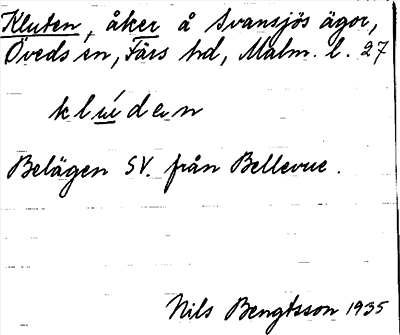 Kluten, åker å Svansjös ägor,
Öveds sn, Färs hd, Malm. l. 27
klúden
Belägen SV. från Bellevue.
Nils Bengtsson 1935